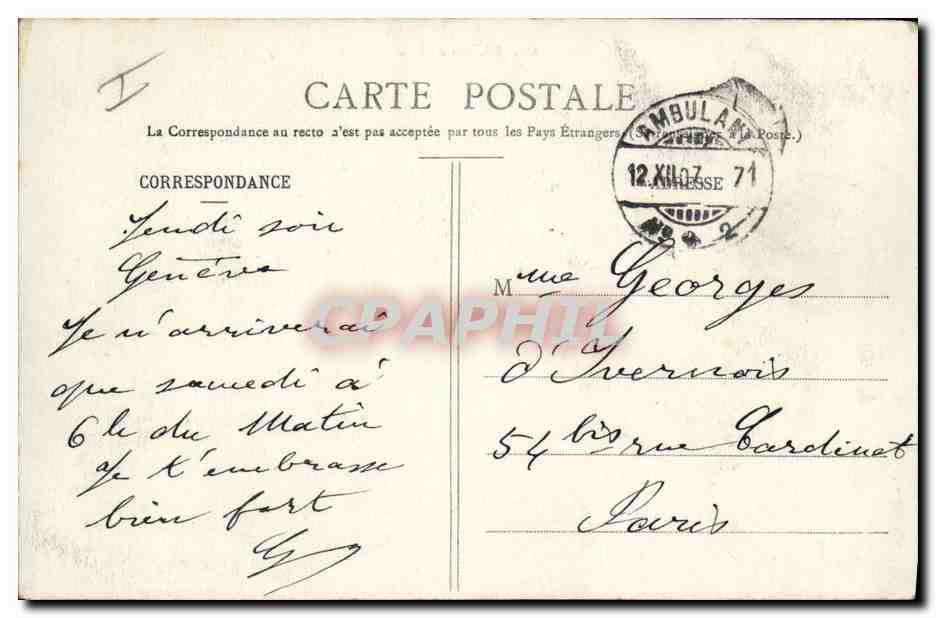 I
CARTE POSTALE
La Correspondance au recto n'est pas acceptée par tous les Pays Étrangers. (Se renseigner à la Poste.)
CORRESPONDANCE
ADRESSE
AMBULANT
12.XII.07. 71
No 2
Jeudi soir
Genève
Je n'arriverai
que samedi à
6 h du Matin
Je t'embrasse
bien fort
G
Mme Georges
d'Ivernois
54 bis rue Cardinet
Paris
CPAPHIL